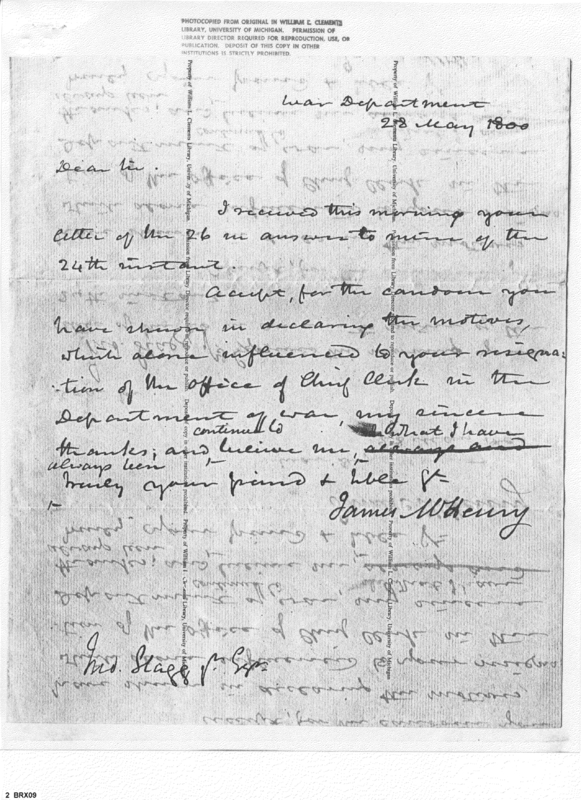 PHOTOCOPIED FROM ORIGINAL IN WILLIAM L. CLEMENTS
LIBRARY, UNIVERSITY OF MICHIGAN. PERMISSION OF
LIBRARY DIRECTOR REQUIRED FOR REPRODUCTION, USE, OR
PUBLICATION. DEPOSIT OF THIS COPY IN OTHER
INSTITUTIONS IS STRICTLY PROHIBITED.
War Department
28 May 1800
Dear Sir.
I received this morning your
letter of the 26 in answer to mine of the
24th instant
Accept, for the candour you
have shewn in declaring the motives,
which alone influenced to your resigna-
tion of the office of Chief Clerk in the
Department of war, my sincere
continue to what I have
thanks; and believe me, always and
always been
truly your friend & Hble St
James McHenry
Jno. Stagg Jr. Esqr.
2 BRX09